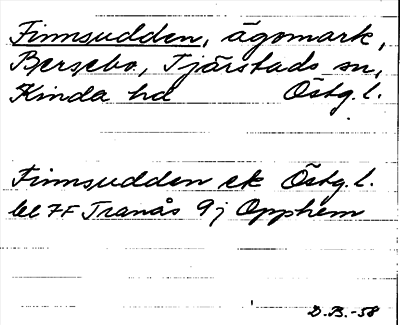 Finnsudden, ägomark,
Bersebo, Tjärstads sn,
Kinda hd Östg.l.
Finnsudden ek Östg.l.
bl 7F Tranås 9j Opphem
D.B.-58